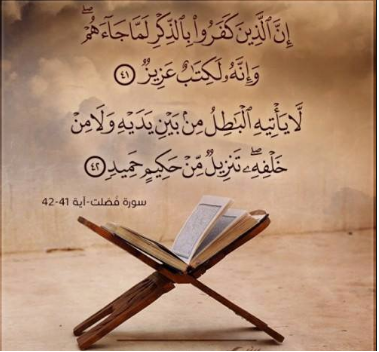 إِنَّ الَّذِينَ كَفَرُوا۟ بِالذِّكْرِ لَمَّا جَآءَهُمْ ۖ
وَإِنَّهُۥ لَكِتَٰبٌ عَزِيزٌ ٤١
لَّا يَأْتِيهِ الْبَٰطِلُ مِنۢ بَيْنِ يَدَيْهِ وَلَا مِنْ
خَلْفِهِۦ ۖ تَنزِيلٌ مِّنْ حَكِيمٍ حَمِيدٍ ٤٢
سورة فصلت-آية 41-42